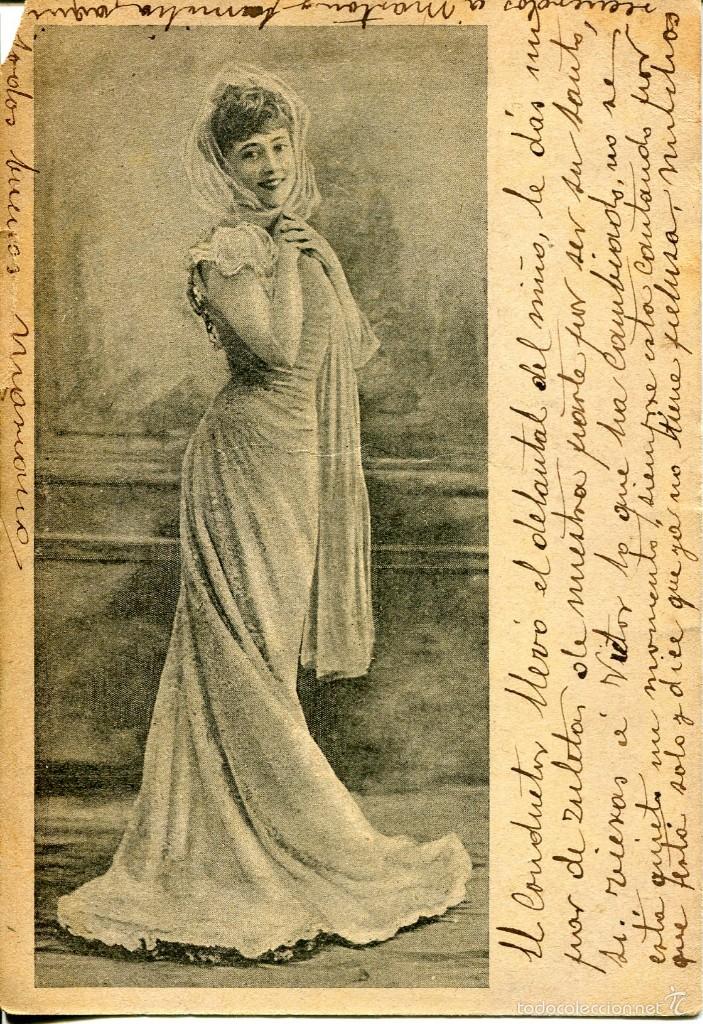 El Conductor llevó el delantal del niño, le dás un
par de zuletas de nuestra parte por ser su santo,
si vieras á Victor lo que ha cambiado, no se
está quieto un momento, siempre está cantando por
que está solo y dice que ya no tiene pelusa, muchos
recuerdos a
familia, aqui
todos buenos Mariano
todocoleccion.net